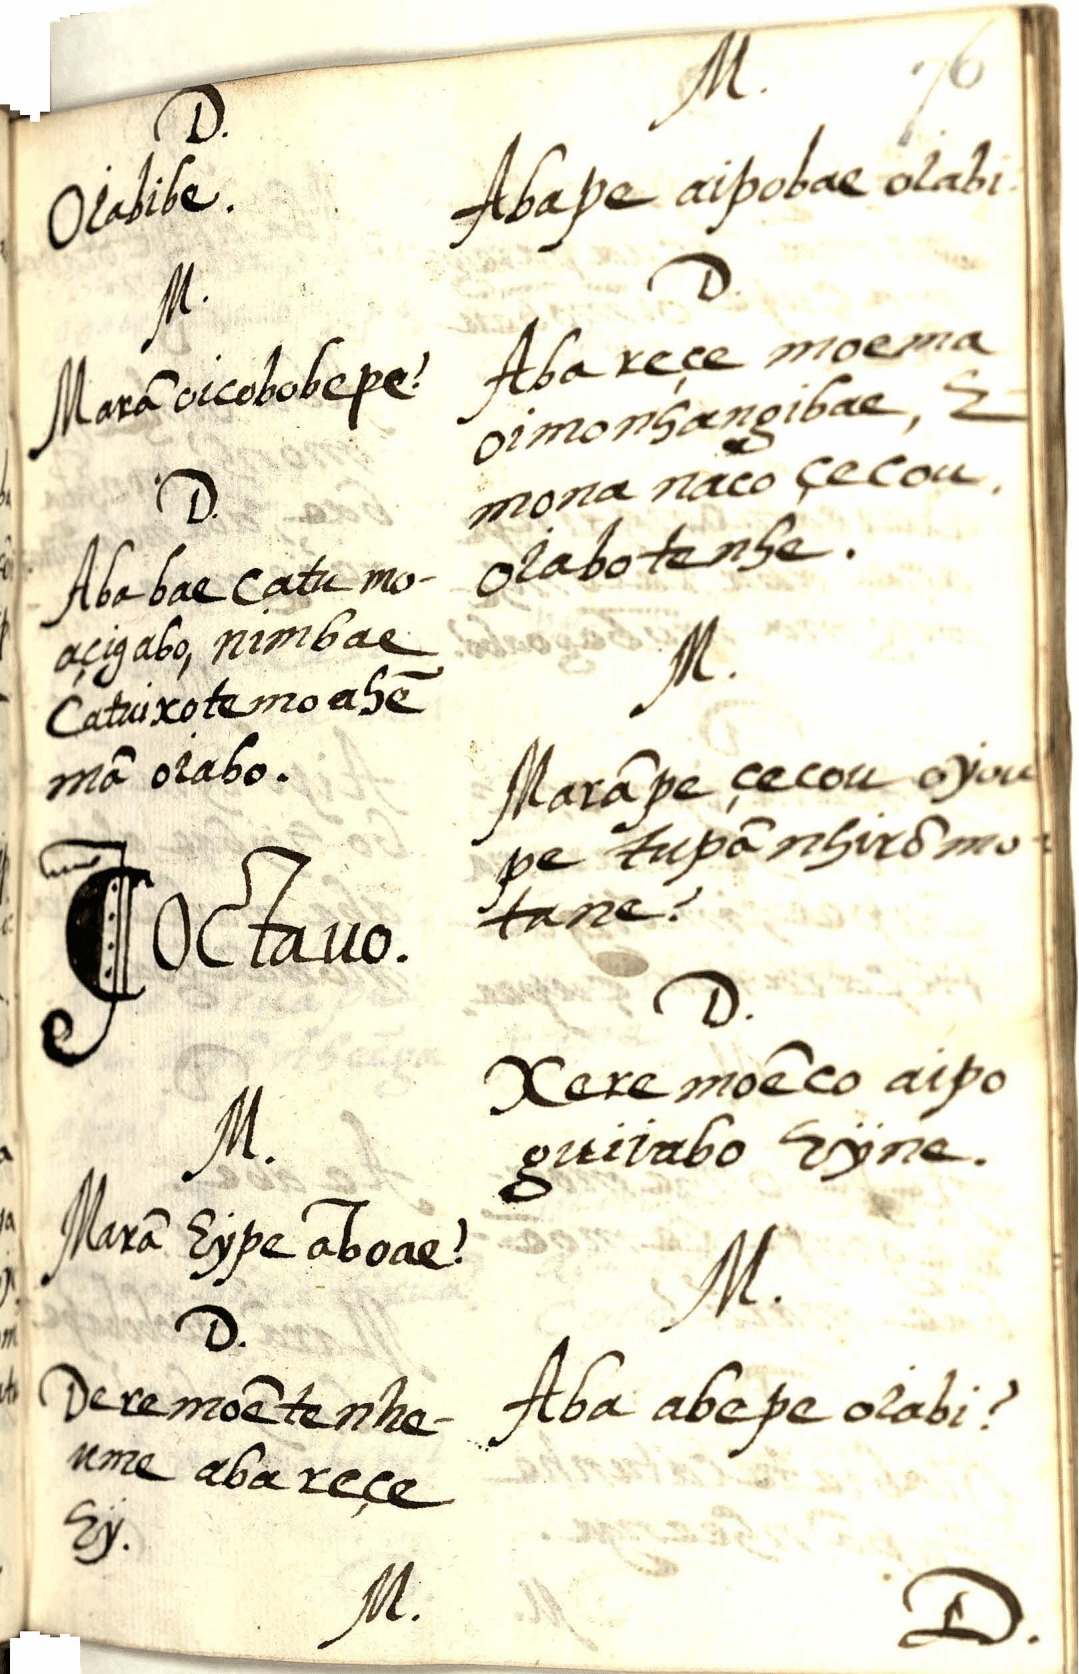 76
D.
Oiabibe.
M.
Marã oicobobepe?
D.
Aba bae catu mo-
açigabo, nimbae
Catuixotemo ahẽ
mã oiabo.
Octauo.
M.
Marã Eÿpe ãboae?
D.
Deremoẽtenhe-
ume aba reçe
Eÿ.
M.
M.
Abape aipobae oiabi
D.
Aba reçe moema
oimonhangibae, E
mona naco çecou,
oiabotenhe.
M.
Marãpe çecou oÿou
pe tupã nhirõmo-
tane?
D.
Xeremoẽco aipo
guiiabo Eÿne.
M.
Aba abepe oiabi?
D.